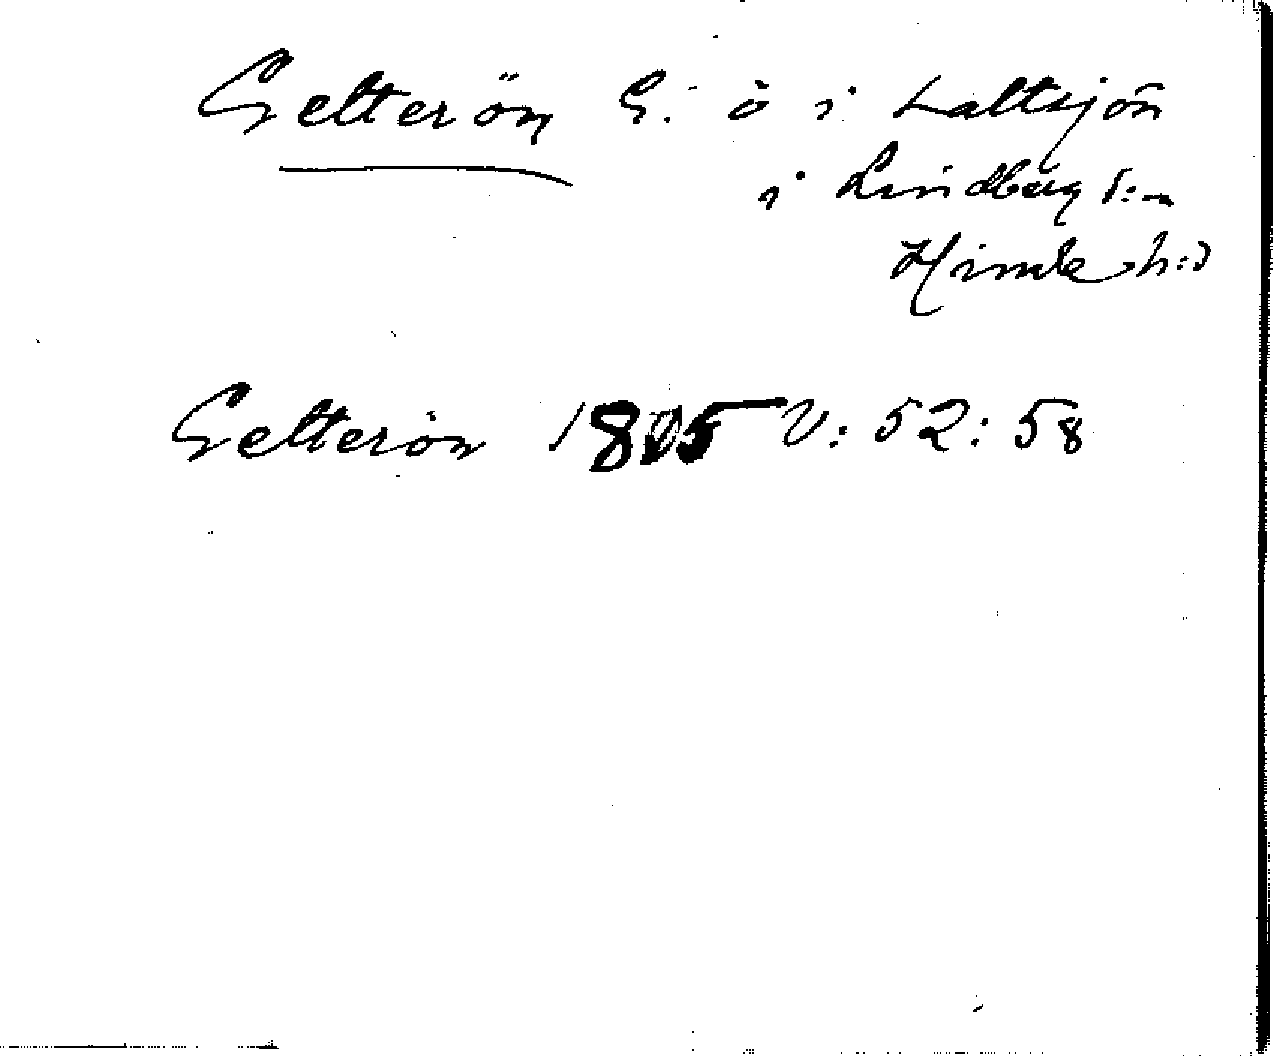 Getterön G. ö i saltsjön
i Lindberg s:n
Himle h:d
Getterön 1805 V: 52: 58